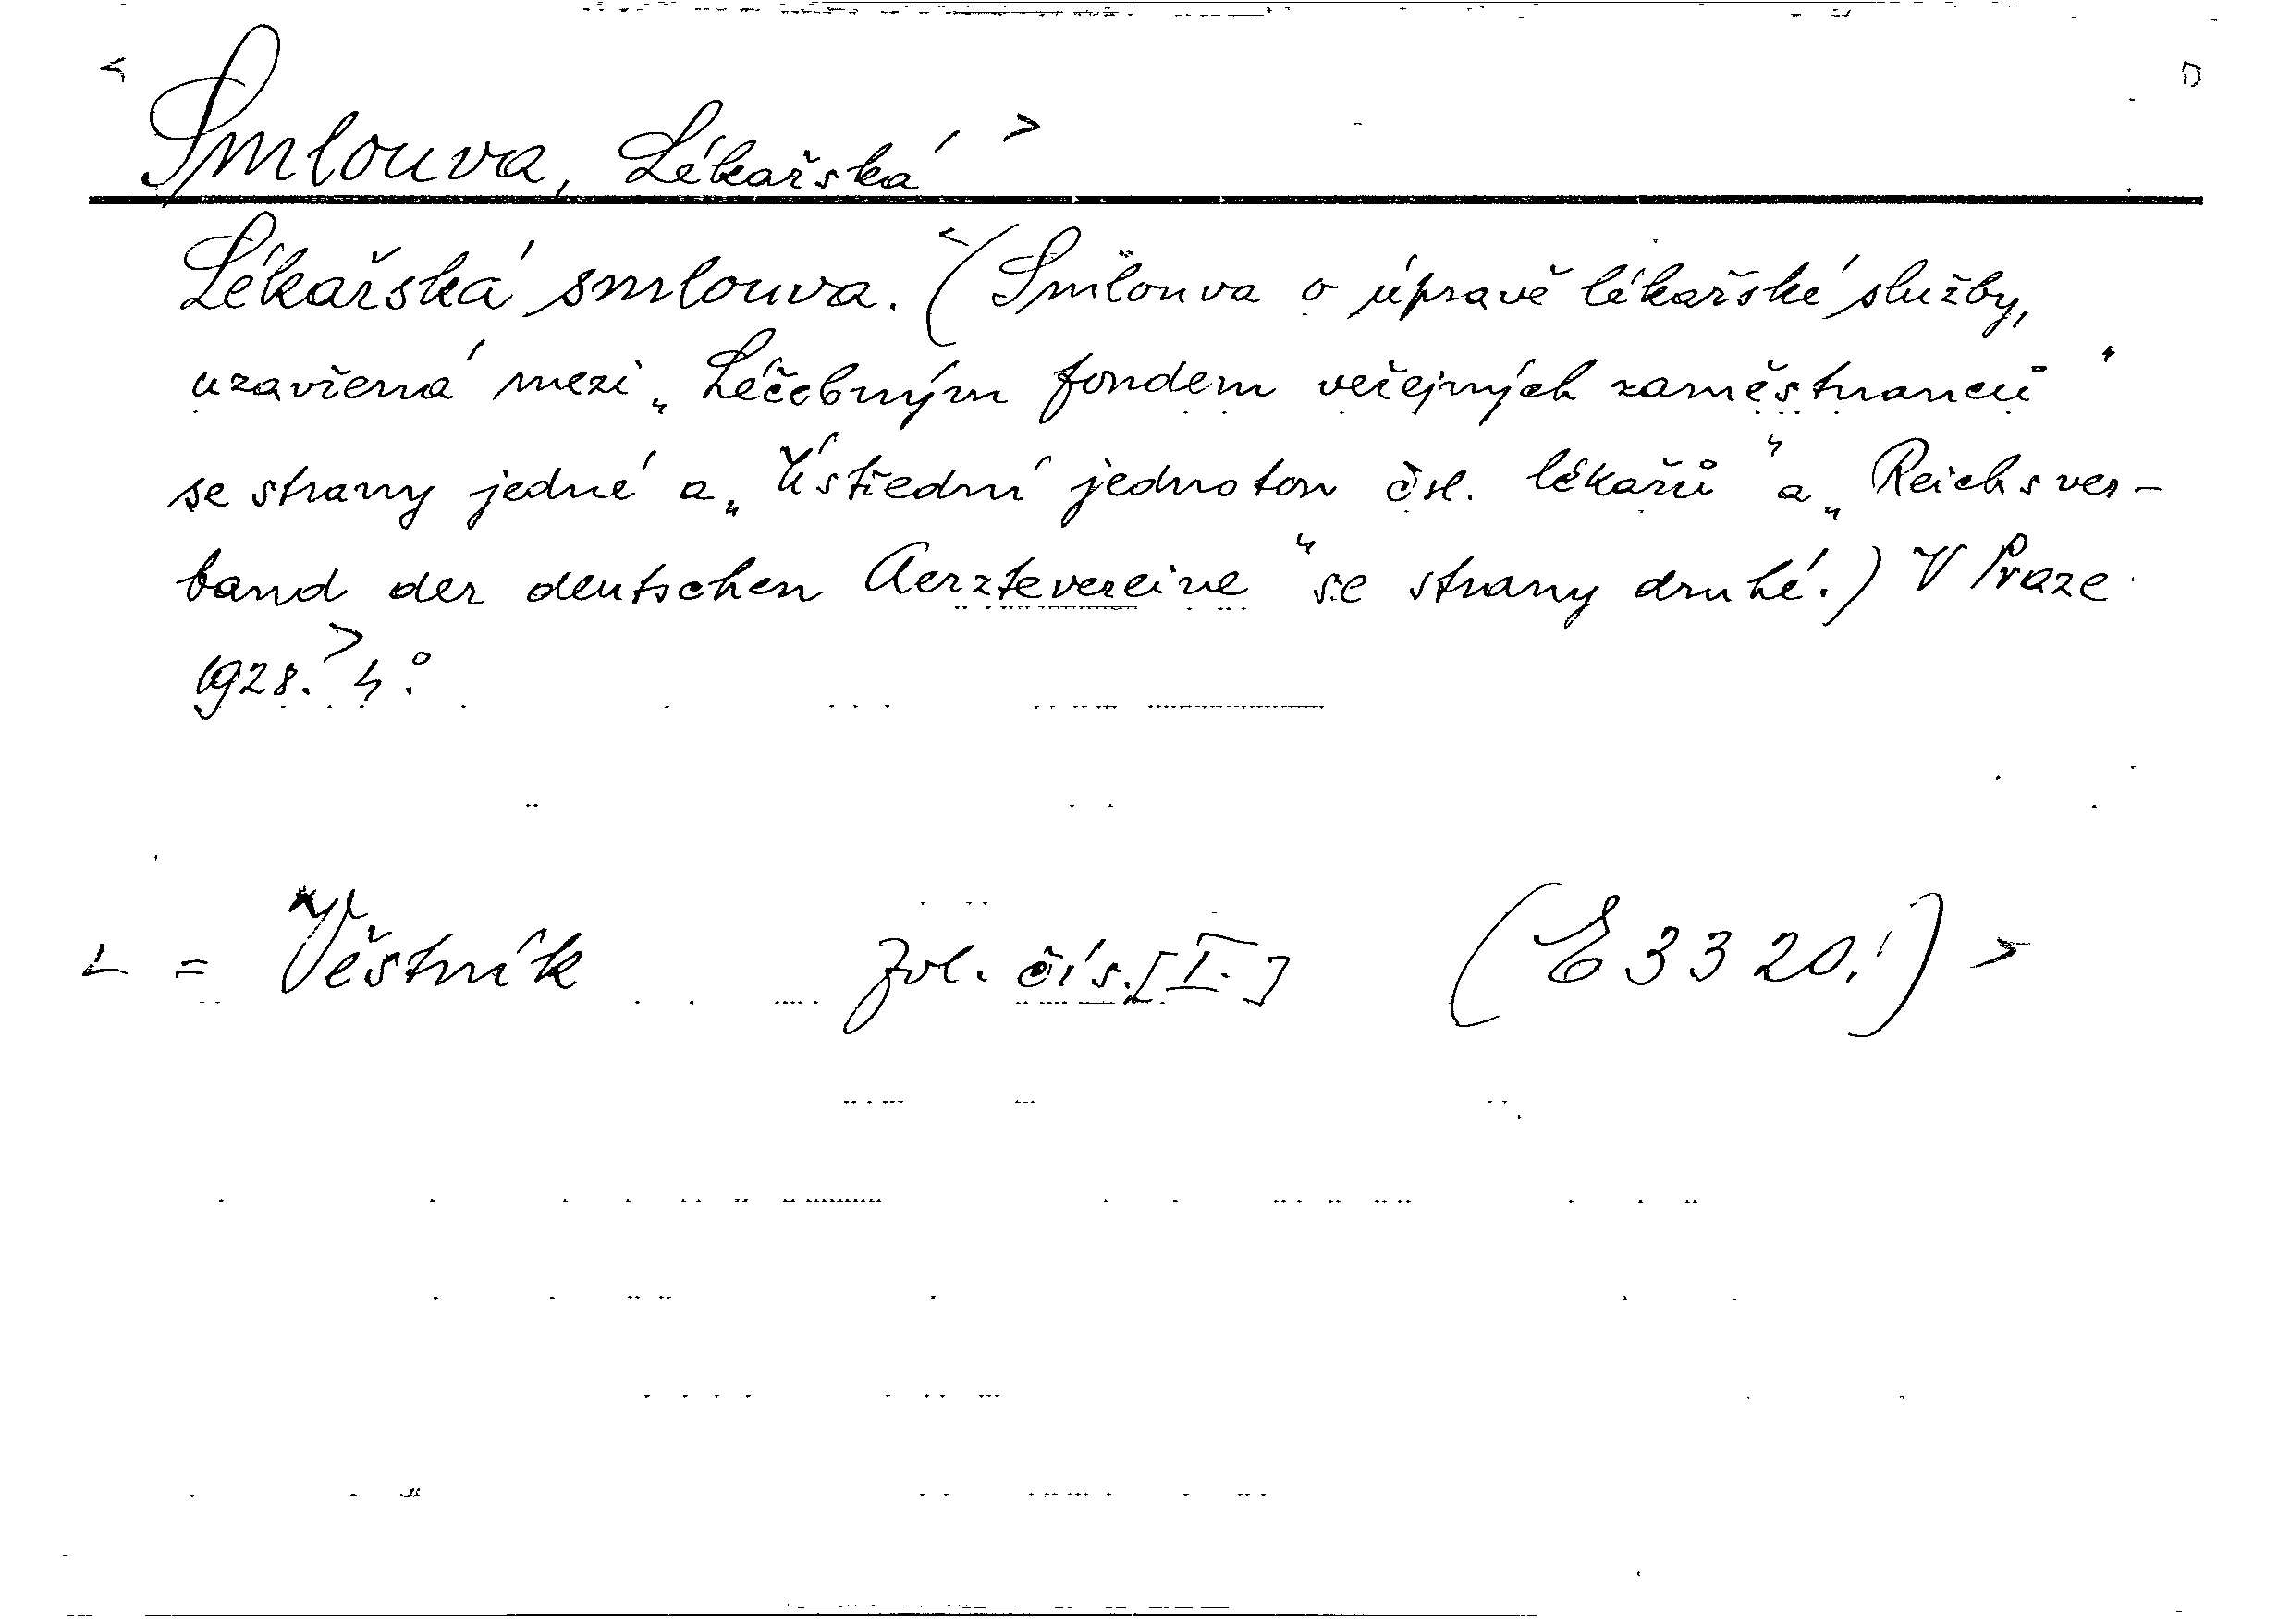 < Smlouva, Lékařská >
Lékařská smlouva. <(Smlouva o úpravě lékařské služby,
uzavřená mezi „Léčebným fondem veřejných zaměstnanců“
se strany jedné a „Ústřední jednotou čsl. lékařů“ a „Reichsver-
band der deutschen Aerztevereine“ se strany druhé.) V Praze
1928.> 4°.
< = Věstník zvl. čís. [I.] (E 3320.) >